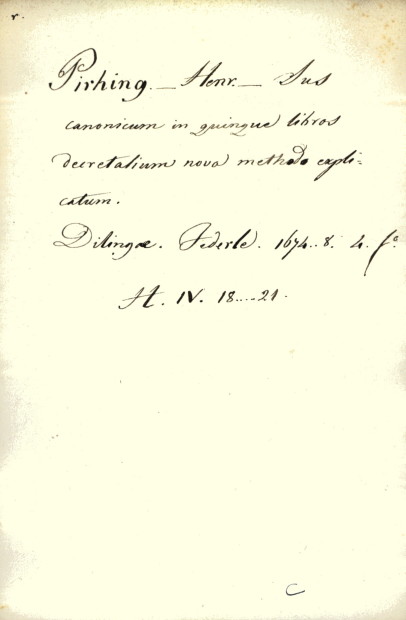 r.
Pirhing. — Henr. — Jus
canonicum in quinque libros
decretalium nova methodo expli-
catum.
Dilingae. Federle. 1674..8. 4. f.º
H. IV. 18....21.
C